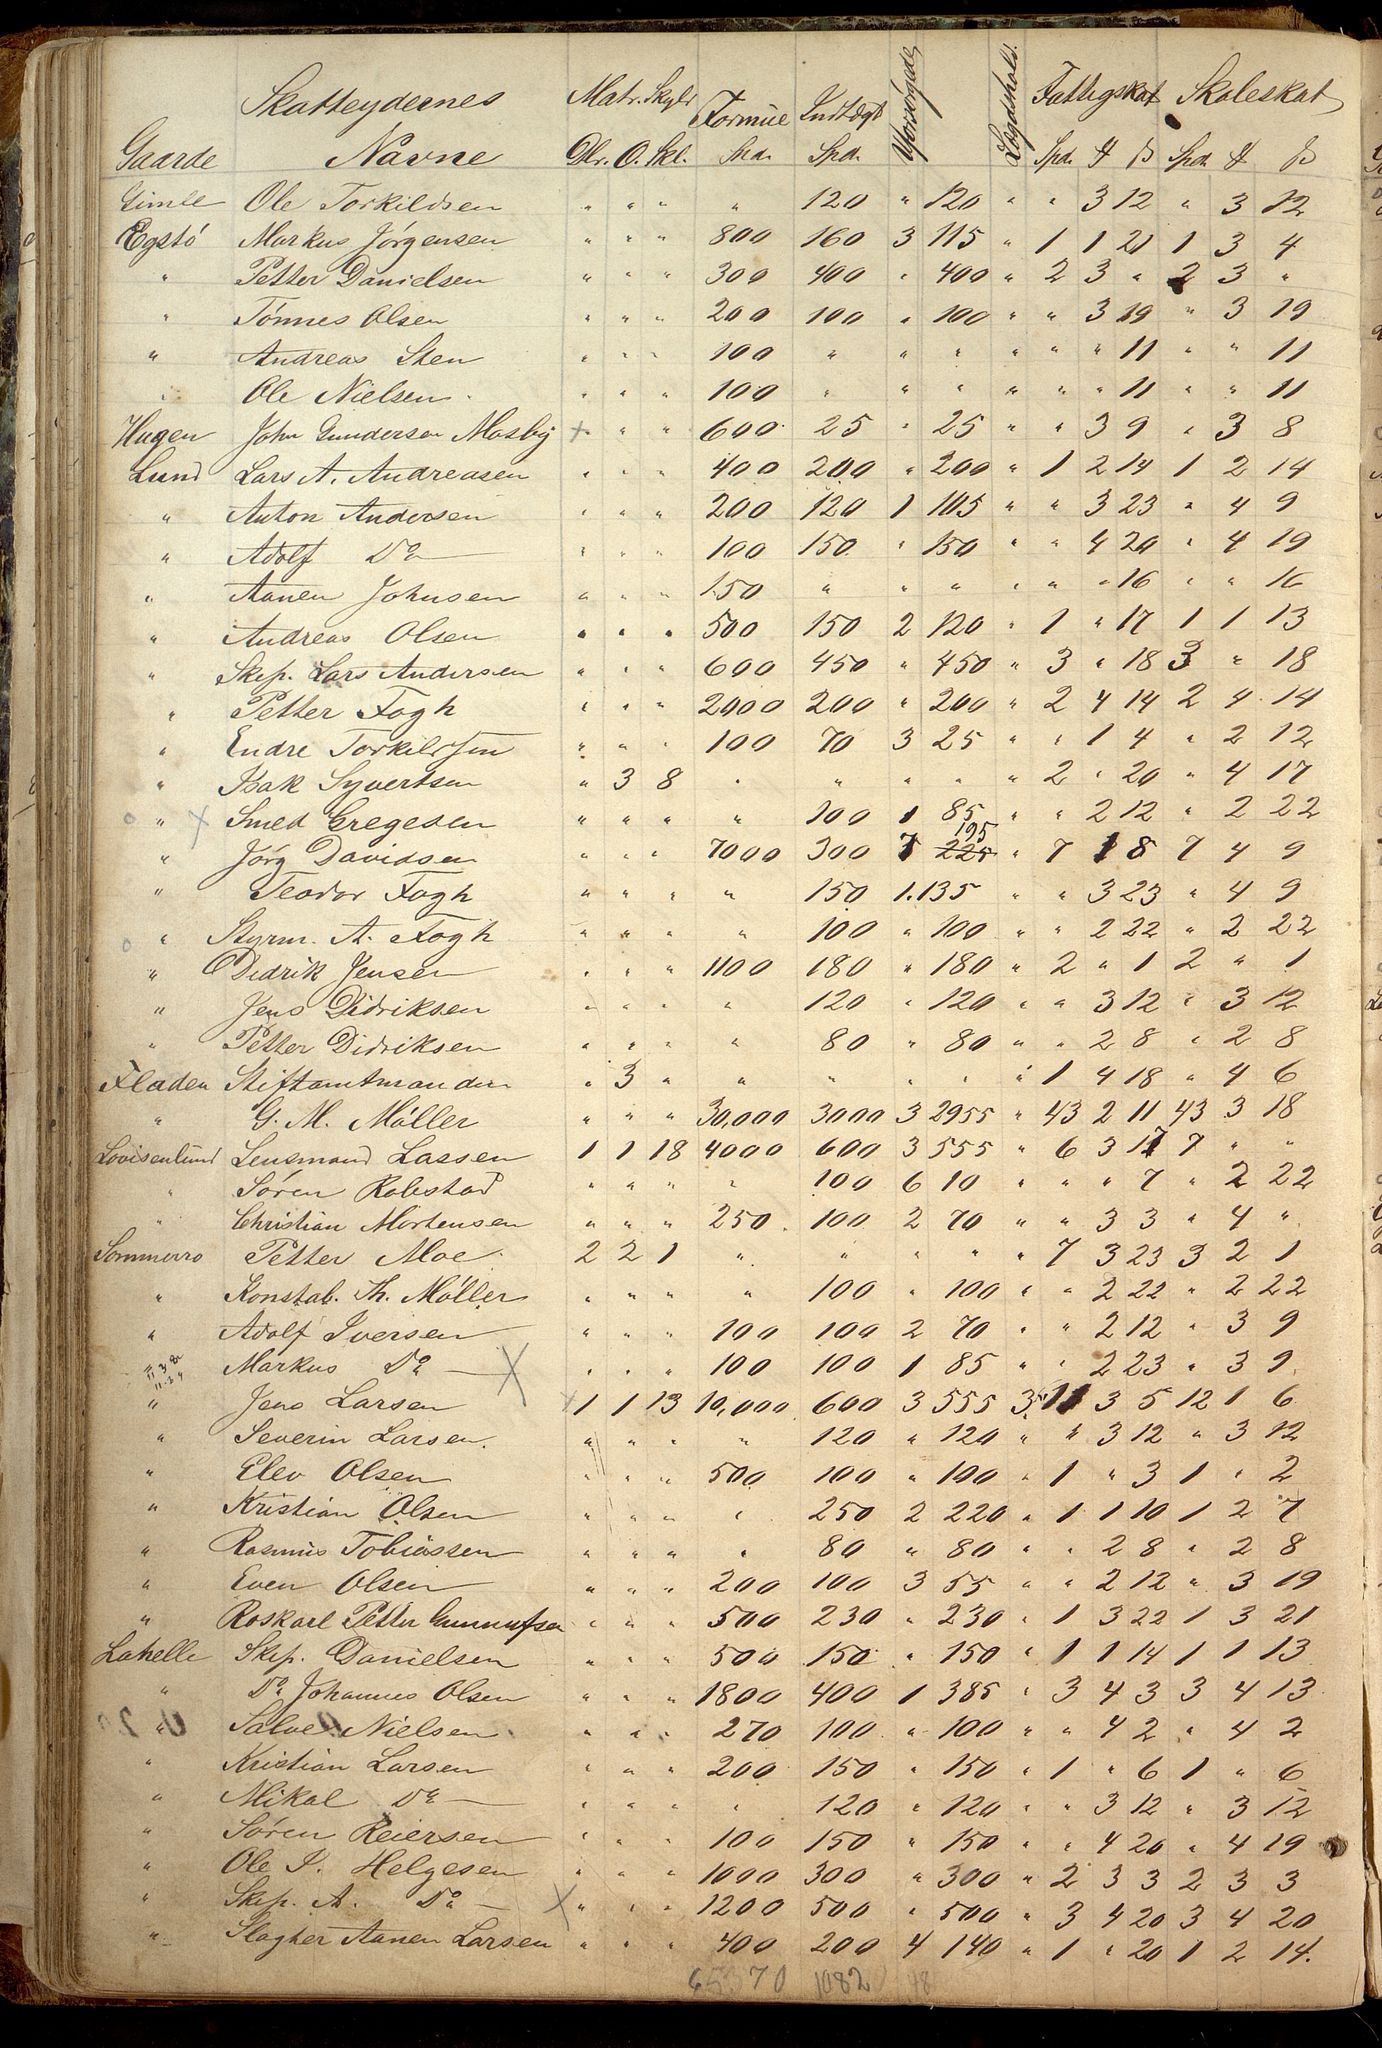 Gaarde Skatteydernes Navne Matr. Skyld Dlr. O. Skl. Formue Spd. Indtægt Spd. Forsørgede Lægdshold. Fattigskat Spd. Skoleskat Spd.
Gimle Ole Torkildsen " " " " 120 " 120 " " 3 12 " 3 12
Egstö Markus Jørgensen " " " 800 160 3 115 " 1 1 21 1 3 4
" Petter Danielsen " " " 300 400 " 400 " 2 3 " 2 3 "
" Tönnes Olsen " " " 200 100 " 100 " " 3 19 " 3 19
" Andreas Sten " " " 100 " " " " " " 11 " " 11
" Ole Nielsen " " " 100 " " " " " " 11 " " 11
Hagen John Gundersen Mosby × " " 600 25 " 25 " " 3 9 " 3 8
Lund Lars A. Andreasen " " " 400 200 " 200 " 1 2 14 1 2 14
" Anton Andersen " " " 200 120 1 105 " " 3 23 " 4 9
" Adolf Do " " " 100 150 " 150 " " 4 20 " 4 19
" Aanen Johnsen " " " 150 " " " " " " 16 " " 16
" Andreas Olsen " " " 500 150 2 120 " 1 " 17 1 1 13
" Skip. Lars Andersen " " " 600 450 " 450 " 3 " 18 3 " 18
" Petter Fogh " " " 2000 200 " 200 " 2 4 14 2 4 14
" Endre Torkildsen " " " 100 70 3 25 " " 1 4 " 2 12
" Isak Syvertsen " 3 8 " " " " " 2 " 20 " 4 17
" × Smed Gregesen " " " " 100 1 85 " " 2 12 " 2 22
195
" Jørg Davidsen " " " 7000 300 7 225 " 7 1 8 7 4 9
" Teodor Fogh " " " " 150 1. 135 " 3 23 " 4 9
" Styrm. A. Fogh " " " " 100 " 100 " " 2 22 " 2 22
" Didrik Jensen " " " 1100 180 " 180 " 2 " 1 2 " 1
" Jens Didriksen " " " " 120 " 120 " " 3 12 " 3 12
" Petter Didriksen " " " " 80 " 80 " " 2 8 " 2 8
Fladen Stiftamtmanden " 3 " " " " " " 1 4 18 " 4 6
" G. M. Möller " " " 30,000 3000 3 2955 " 43 2 11 43 3 18
Lovisenlund Lensmand Lassen 1 1 18 4000 600 3 555 " 6 3 17 7 " "
" Søren Robstad " " " " 100 6 10 " " " 7 " 2 22
" Christian Mortensen " " " 250 100 2 70 " " 3 3 " 4 "
Sommerro Petter Moe 2 2 1 " " " " " 7 3 23 3 2 1
" Konstab. Th. Möller " " " " 100 " 100 " " 2 22 " 2 22
" Adolf Iversen " " " 100 100 2 70 " " 2 12 " 3 9
Markus Do × " " " 100 100 1 85 " " 2 23 " 3 9
" Jens Larsen × 1 1 13 10,000 600 3 555 3 11 3 5 12 1 6
" Severin Larsen " " " " 120 " 120 " " 3 12 " 3 12
" Elev Olsen " " " 500 100 " 100 " 1 " 3 1 " 2
" Kristian Olsen " " " " 250 2 220 " 1 1 10 1 2 7
" Rasmus Tobiassen " " " " 80 " 80 " " 2 8 " 2 8
" Even Olsen " " " 200 100 3 55 " " 2 12 " 3 19
" Roskarl Petter Gunnufsen " " " 500 230 " 230 " 1 3 22 1 3 21
Lahelle Skip. Danielsen " " " 500 150 " 150 " 1 1 14 1 1 13
" Do Johannes Olsen " " " 1800 400 1 385 " 3 4 3 3 4 13
" Salve Nielsen " " " 270 100 " 100 " " 4 2 " 4 2
" Kristian Larsen " " " 200 150 " 150 " 1 " 6 1 " 6
" Mikal Do " " " " 120 " 120 " " 3 12 " 3 12
" Søren Reiersen " " " 100 150 " 150 " " 4 20 " 4 19
" Ole P. Helgesen " " " 1000 300 " 300 " 2 3 3 2 3 3
" Skip. A. Do × " " " 1200 500 " 500 " 3 4 20 3 4 20
" Slagter Aanen Larsen " " " 400 200 4 140 " 1 " 20 1 2 14.
65370 1082 48